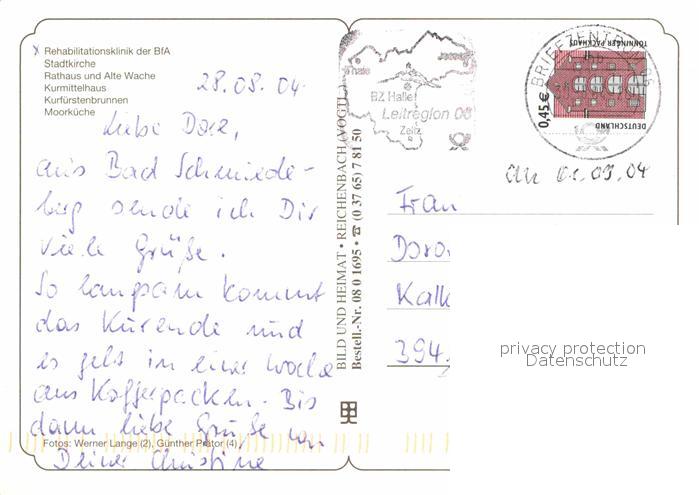 x Rehabilitationsklinik der BfA
Stadtkirche
Rathaus und Alte Wache
Kurmittelhaus
Kurfürstenbrunnen
Moorküche
28.08.04
Liebe Dore,
aus Bad Schmiede-
berg sende ich Dir
viele Grüße.
So langsam kommt
das Kurende und
es geht in einer Woche
ans Kofferpacken. Bis
dann liebe Grüße von
Deiner Christine
Fotos: Werner Lange (2), Günther Prätor (4)
BILD UND HEIMAT • REICHENBACH (VOGTL)
Bestell.-Nr. 08 0 1695 • ☎ (0 37 65) 7 81 50
BZ Halle
Leitregion 06
Zeitz
BRIEFZENTRUM
TÖNNINGER PACKHAUS
0,45 €
DEUTSCHLAND
an 01.09.04
Frau
Doro
Kalk
394
privacy protection
Datenschutz